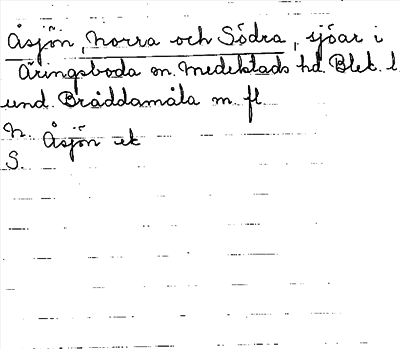 Åsjön, Norra och Södra, sjöar i
Äringsboda sn. Medelstads hd. Blek. l
und. Bräddamåla m. fl.
N. Åsjön ek
S.